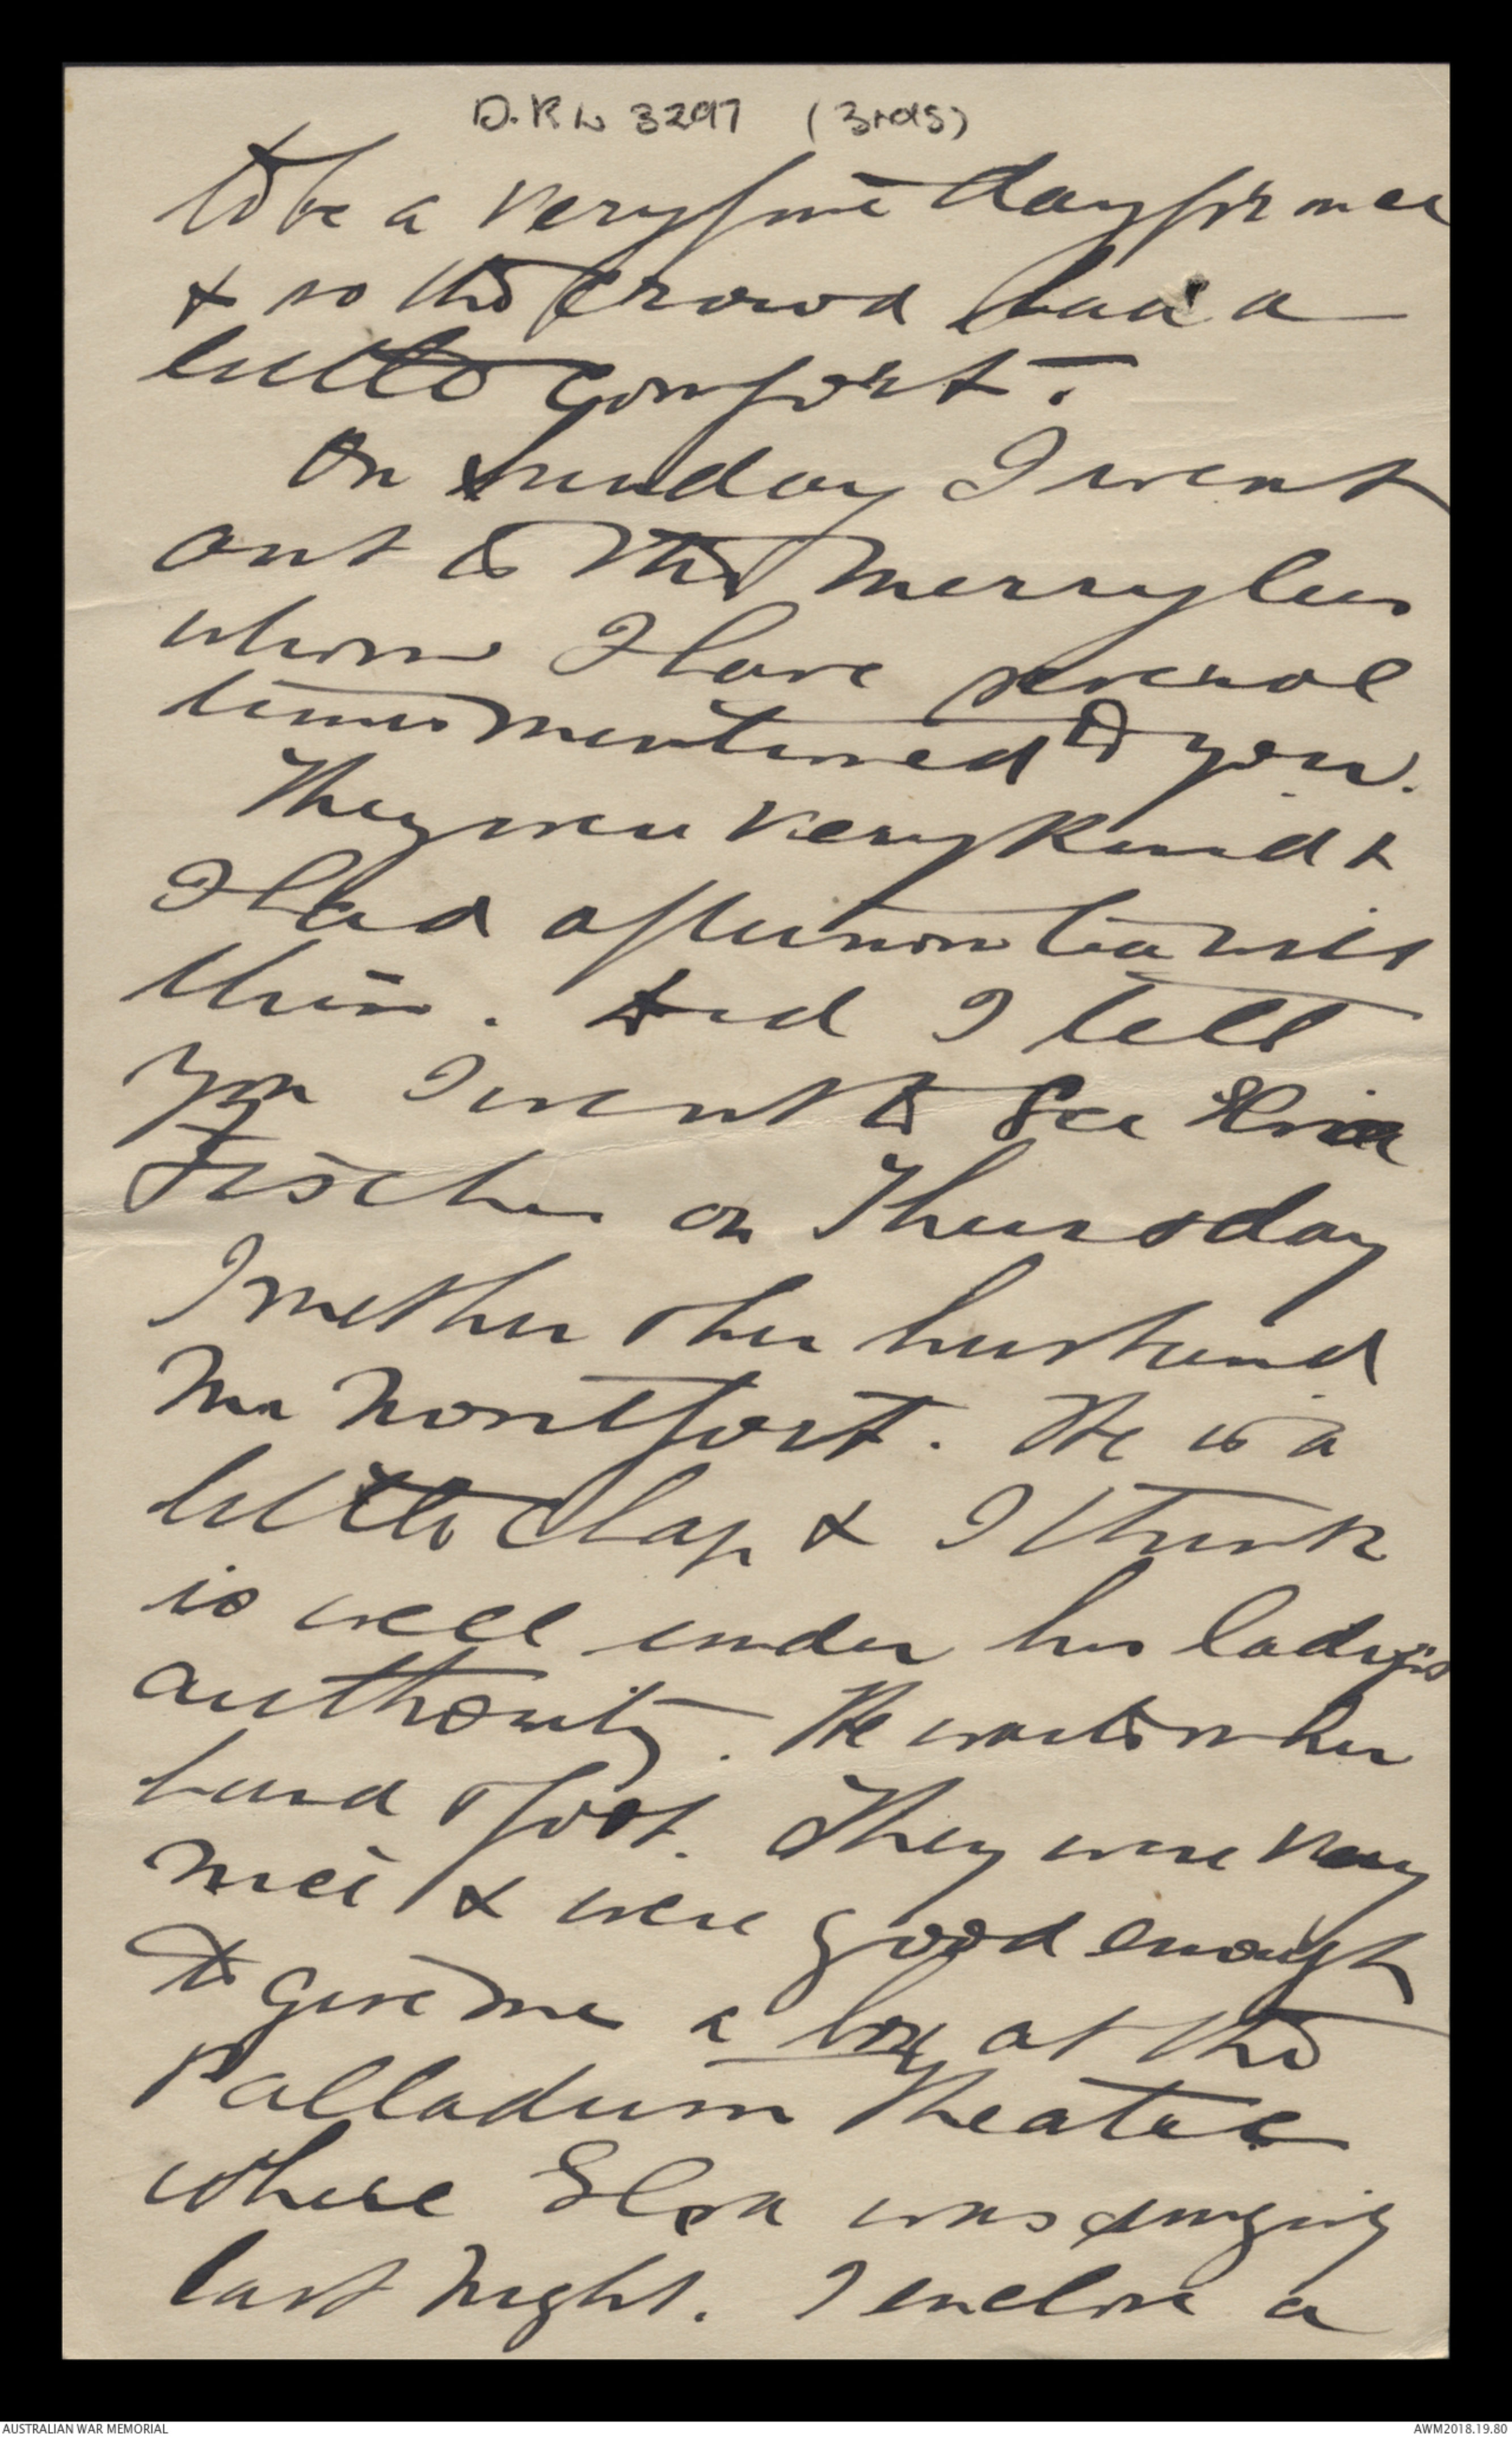 D.R.L 3297 (3rdS)
to be a very fine day for once
& so the crowd had a
little comfort.
On Sunday I went
out to the Merrylees
whom I have several
times mentioned to you.
They were very kind &
I had afternoon tea with
them. Did I tell
you I went to see Elsa
Fischer on Thursday
I met her & her husband
Mr Montfort. He is a
little chap & I think
is well under his lady's
authority. He waits on her
hand & foot. They were very
nice & were good enough
to give me a box at the
Palladium Theatre
where Elsa was singing
last night. I enclose a
AUSTRALIAN WAR MEMORIAL
AWM2018.19.80